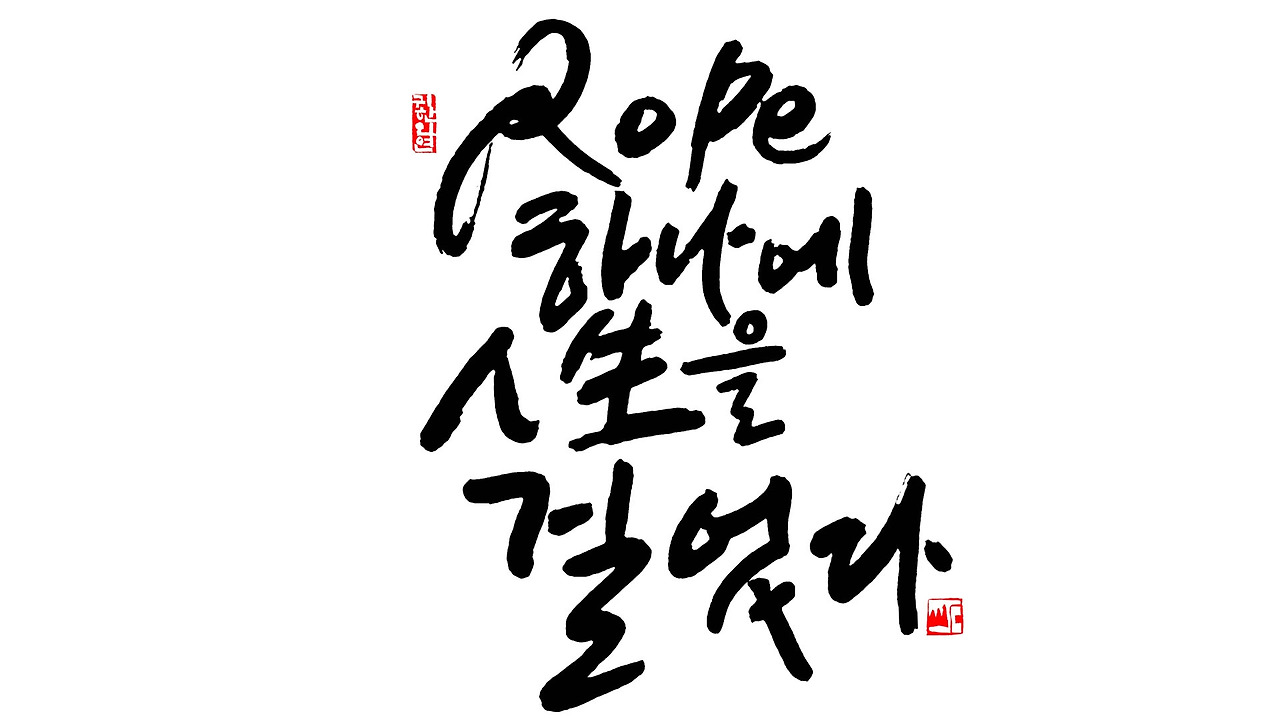 Rope
하나에
人生을
걸었다